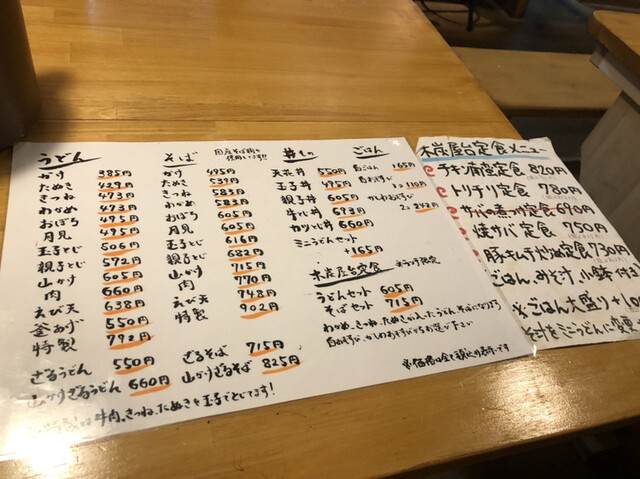 うどん
かけ 385円
たぬき 429円
きつね 473円
わかめ 473円
おぼろ 495円
月見 495円
玉子とじ 506円
親子とじ 572円
山かけ 605円
肉 660円
えび天 638円
釜あげ 550円
特製 792円
ざるうどん 550円
山かけざるうどん 660円
そば
国産そば粉を使用しています!!
かけ 495円
たぬき 539円
きつね 583円
わかめ 583円
おぼろ 605円
月見 605円
玉子とじ 616円
親子とじ 682円
山かけ 715円
肉 770円
えび天 748円
特製 902円
ざるそば 715円
山かけざるそば 825円
特製は牛肉、きつね、たぬきを玉子でとじてます!
丼もの
天花丼 550円
玉子丼 495円
親子丼 605円
牛とじ丼 693円
カツとじ丼 660円
ミニうどんセット
+165円
ごはん
白ごはん 165円
白おむすび
2ヶ 110円
かしわおむすび
2ヶ 242円
木炭屋台定食
うどんセット 605円
そばセット 715円
※価格は全て税込の表示です
木炭屋台定食メニュー
チキン南蛮定食 820円
トリチリ定食 780円
サバの煮つけ定食 690円
焼サバ定食 750円
豚キムチ炒め定食 730円
ごはん、みそ汁、小鉢付き
※ごはん大盛り+